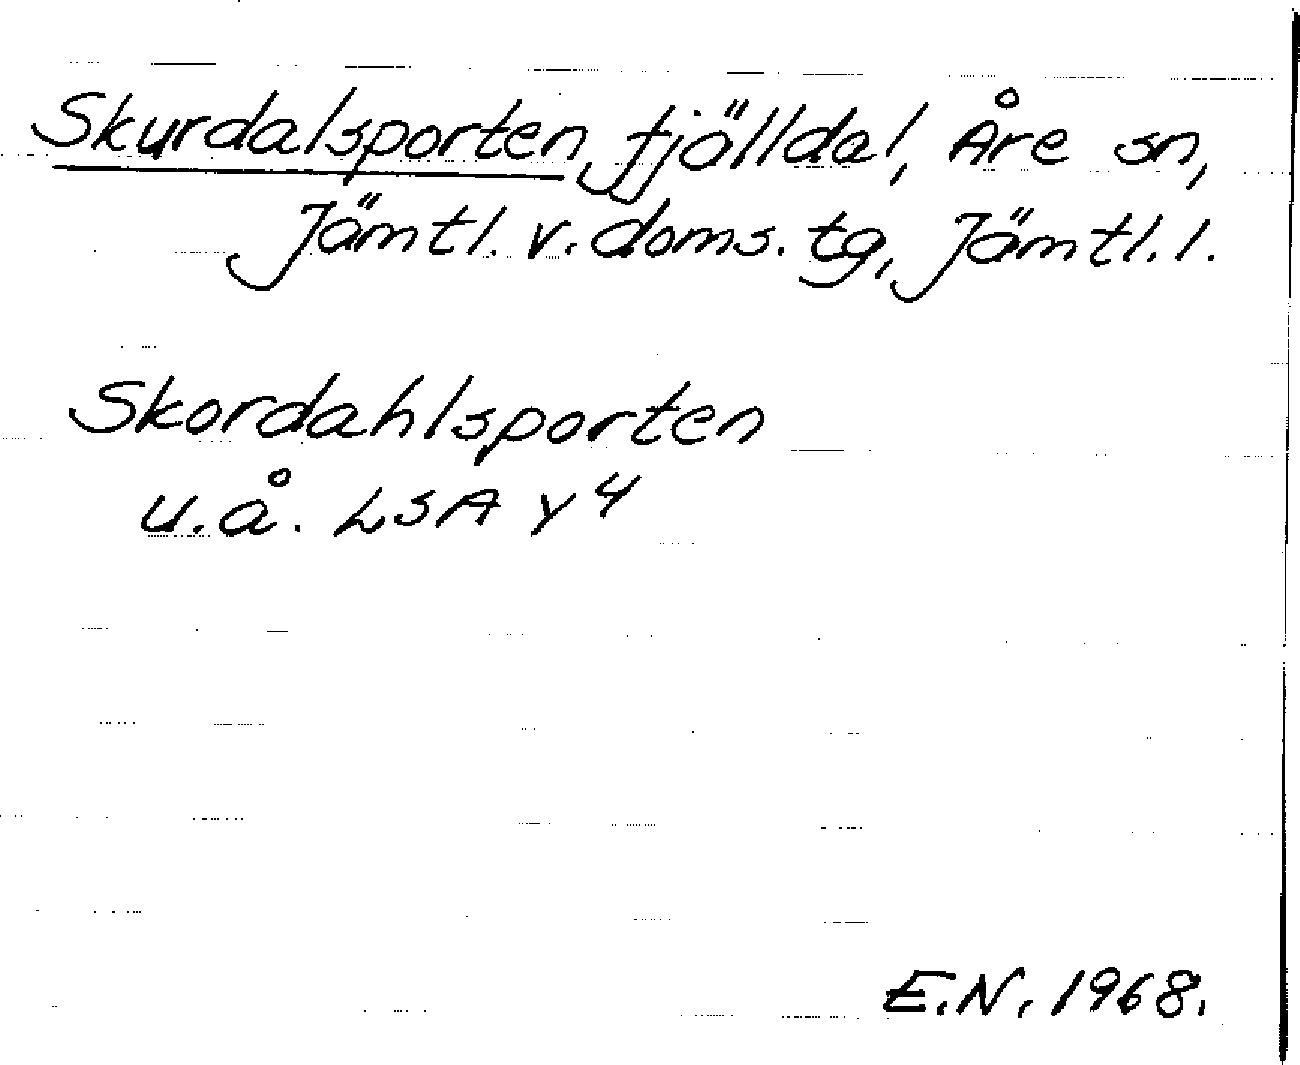 Skurdalsporten, fjälldal, Åre sn,
Jämtl. v. doms. tg, Jämtl. l.
Skordahlsporten
u.å. LSA Y 4
E.N. 1968.